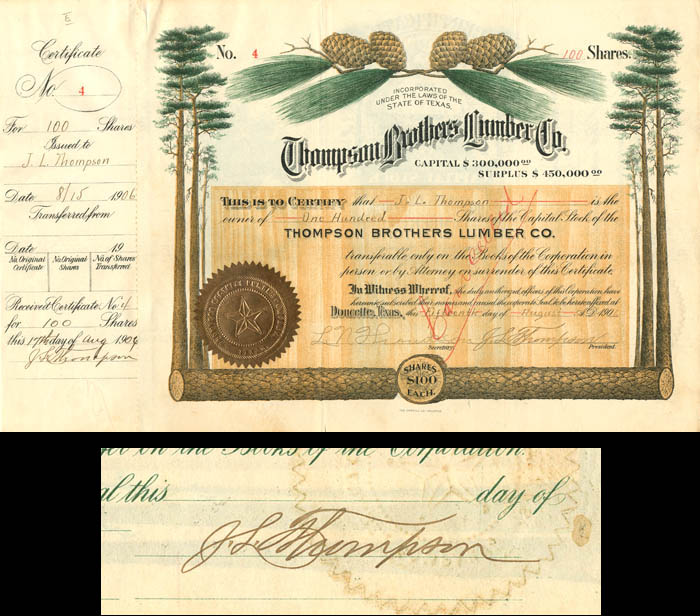 Certificate
No. 4
For 100 Shares
Issued to
J. L. Thompson
Date 8/15 1906
Transferred from
Date 19
No. Original Certificate No. Original Shares No. of Shares Transferred
Received Certificate No. 4
for 100 Shares
this 17th day of Aug 1906
J. L. Thompson
No. 4 100 Shares.
INCORPORATED
UNDER THE LAWS OF THE
STATE OF TEXAS.
Thompson Brothers Lumber Co.
CAPITAL $300,000.00
SURPLUS $450,000.00
THIS IS TO CERTIFY that J. L. Thompson is the
owner of One Hundred Shares of the Capital Stock of the
THOMPSON BROTHERS LUMBER CO.
transferable only on the Books of the Corporation in
person or by Attorney on surrender of this Certificate.
In Witness Whereof, the duly authorized officers of this Corporation, have
hereunto subscribed their names and caused the corporate Seal to be hereto affixed at
Doucette, Texas, this day of August A.D. 1906
J. L. Thompson
Secretary. President.
SHARES
$100
EACH.
on the Books of the Corporation.
al this day of
J. L. Thompson